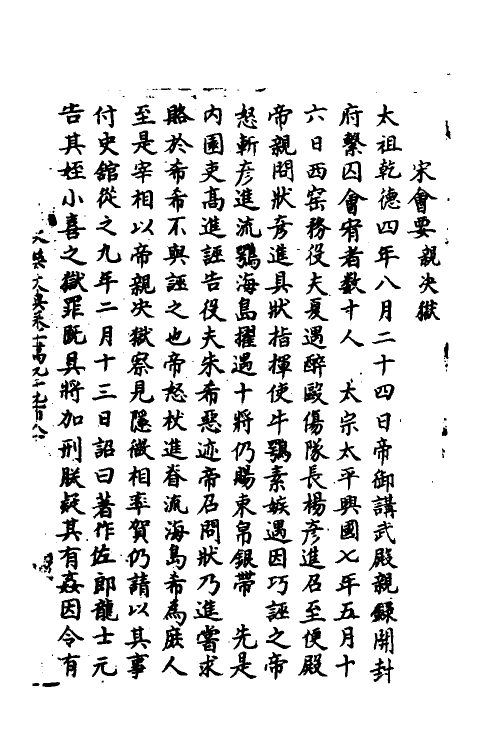 宋會要 親決獄
太祖乾德四年八月二十四日帝御講武殿親錄開封
府繫囚會宥者數十人 太宗太平興國七年五月十
六日西窰務役夫夏遇醉毆傷隊長楊彥進召至便殿
帝親問狀彥進具狀指揮使牛鶚素嫉遇因巧誣之帝
怒斬彥進流鶚海島擢遇十將仍賜束帛銀帶 先是
內園吏高進誣告役夫朱希惡迹帝召問狀乃進嘗求
賂於希希不與誣之也帝怒杖進脊流海島希為庶人
至是宰相以帝親決獄察見隱微相率賀仍請以其事
付史館從之九年二月十三日詔曰著作佐郎龍士元
告其姪小喜之獄罪既具將加刑朕疑其有姦因令有